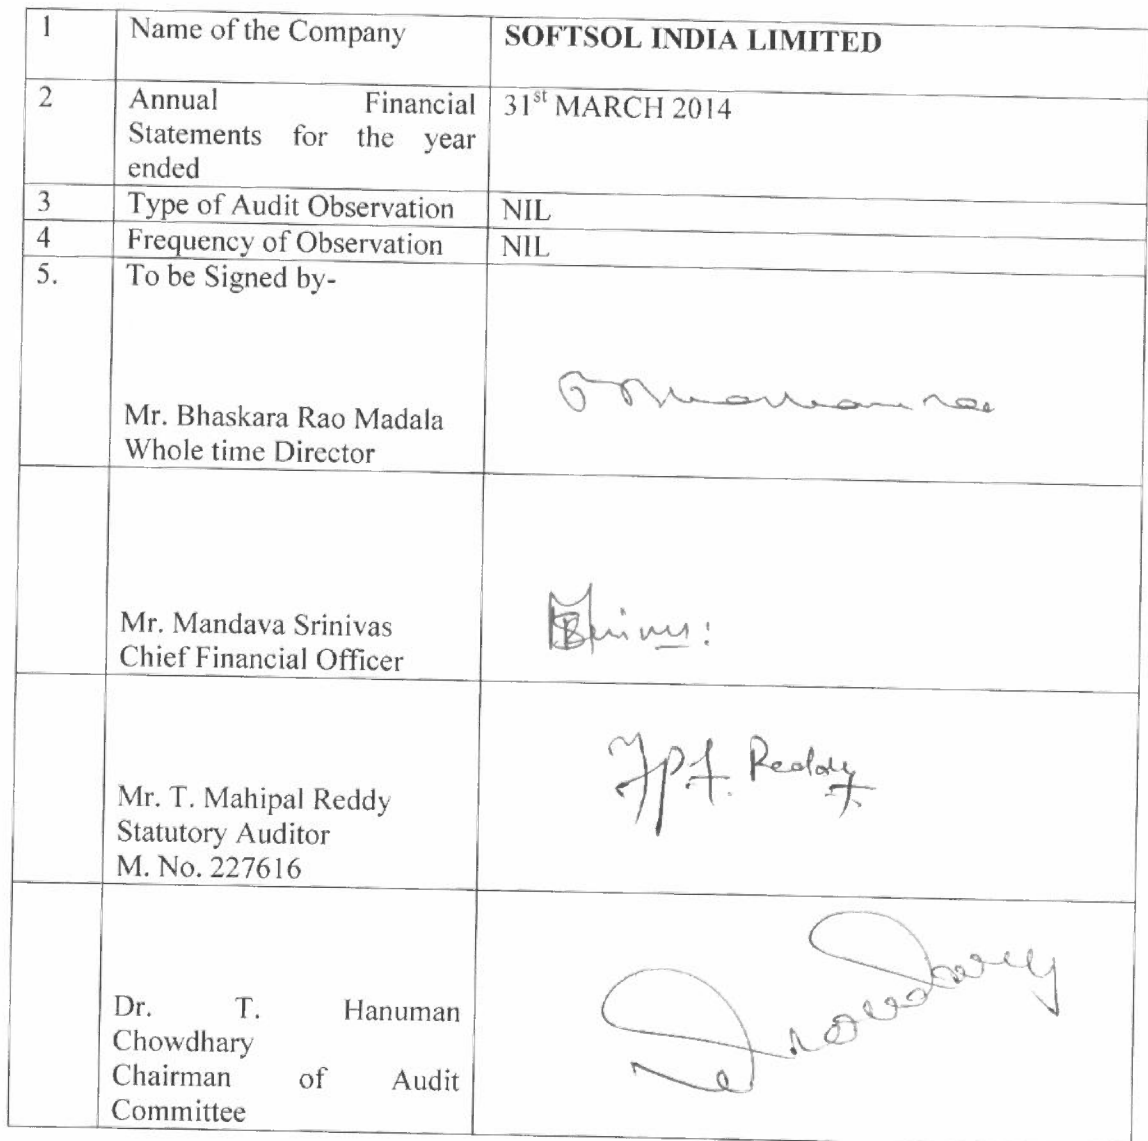 1 Name of the Company SOFTSOL INDIA LIMITED
2 Annual Financial 31st MARCH 2014
Statements for the year
ended
3 Type of Audit Observation NIL
4 Frequency of Observation NIL
5. To be Signed by-
Mr. Bhaskara Rao Madala
Whole time Director
Mr. Mandava Srinivas
Chief Financial Officer
Reddy
Mr. T. Mahipal Reddy
Statutory Auditor
M. No. 227616
Dr. T. Hanuman
Chowdhary
Chairman of Audit
Committee